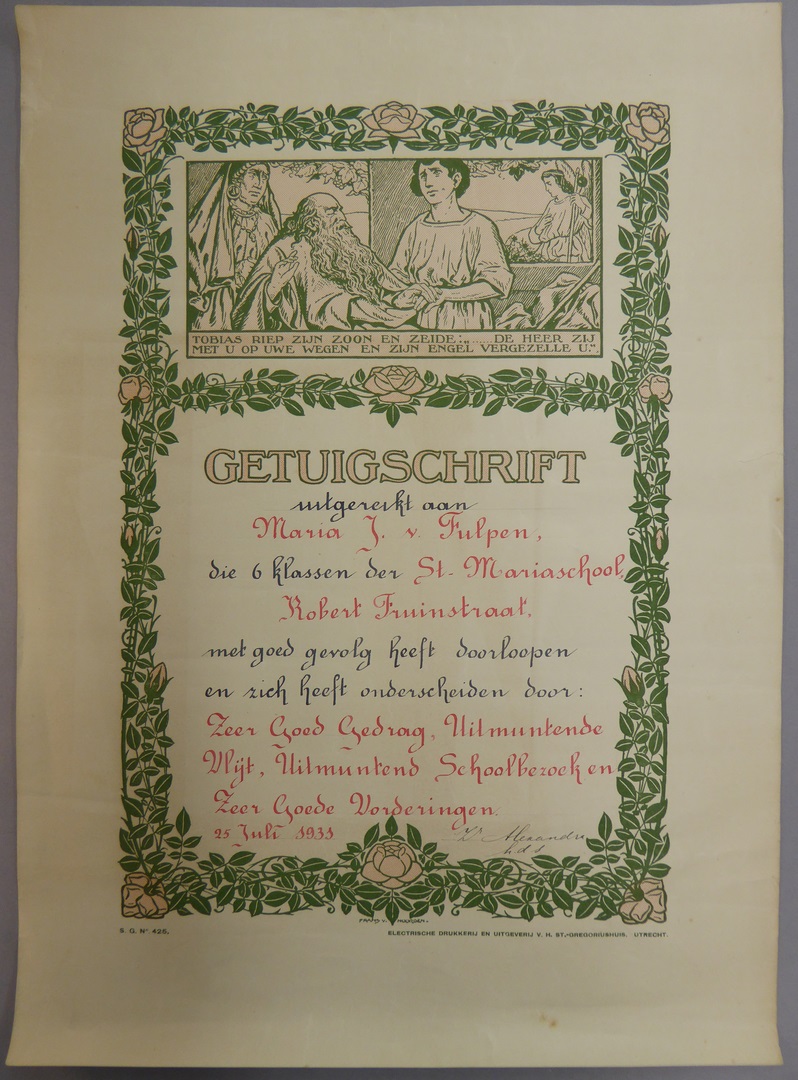 TOBIAS RIEP ZIJN ZOON EN ZEIDE: „......DE HEER ZIJ
MET U OP UWE WEGEN EN ZIJN ENGEL VERGEZELLE U.".
GETUIGSCHRIFT
uitgereikt aan
Maria J. v. Fulpen,
die 6 klassen der St-Mariaschool,
Robert Fruinstraat,
met goed gevolg heeft doorloopen
en zich heeft onderscheiden door:
Zeer Goed Gedrag, Uitmuntende
Vlijt, Uitmuntend Schoolbezoek en
Zeer Goede Vorderingen.
25 Juli 1931
Zr Alexandra
h.d.s
FRANS V.
S. G. No 425.
ELECTRISCHE DRUKKERIJ EN UITGEVERIJ V. H. ST.-GREGORIUSHUIS, UTRECHT.